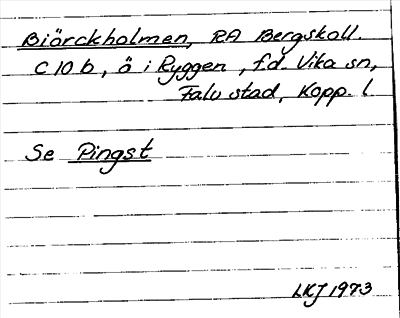 Biörckholmen, RA Bergskoll.
C 10 b, ö i Ryggen, f.d. Vika sn,
Falu stad, Kopp. l
Se Pingst
LKJ 1973